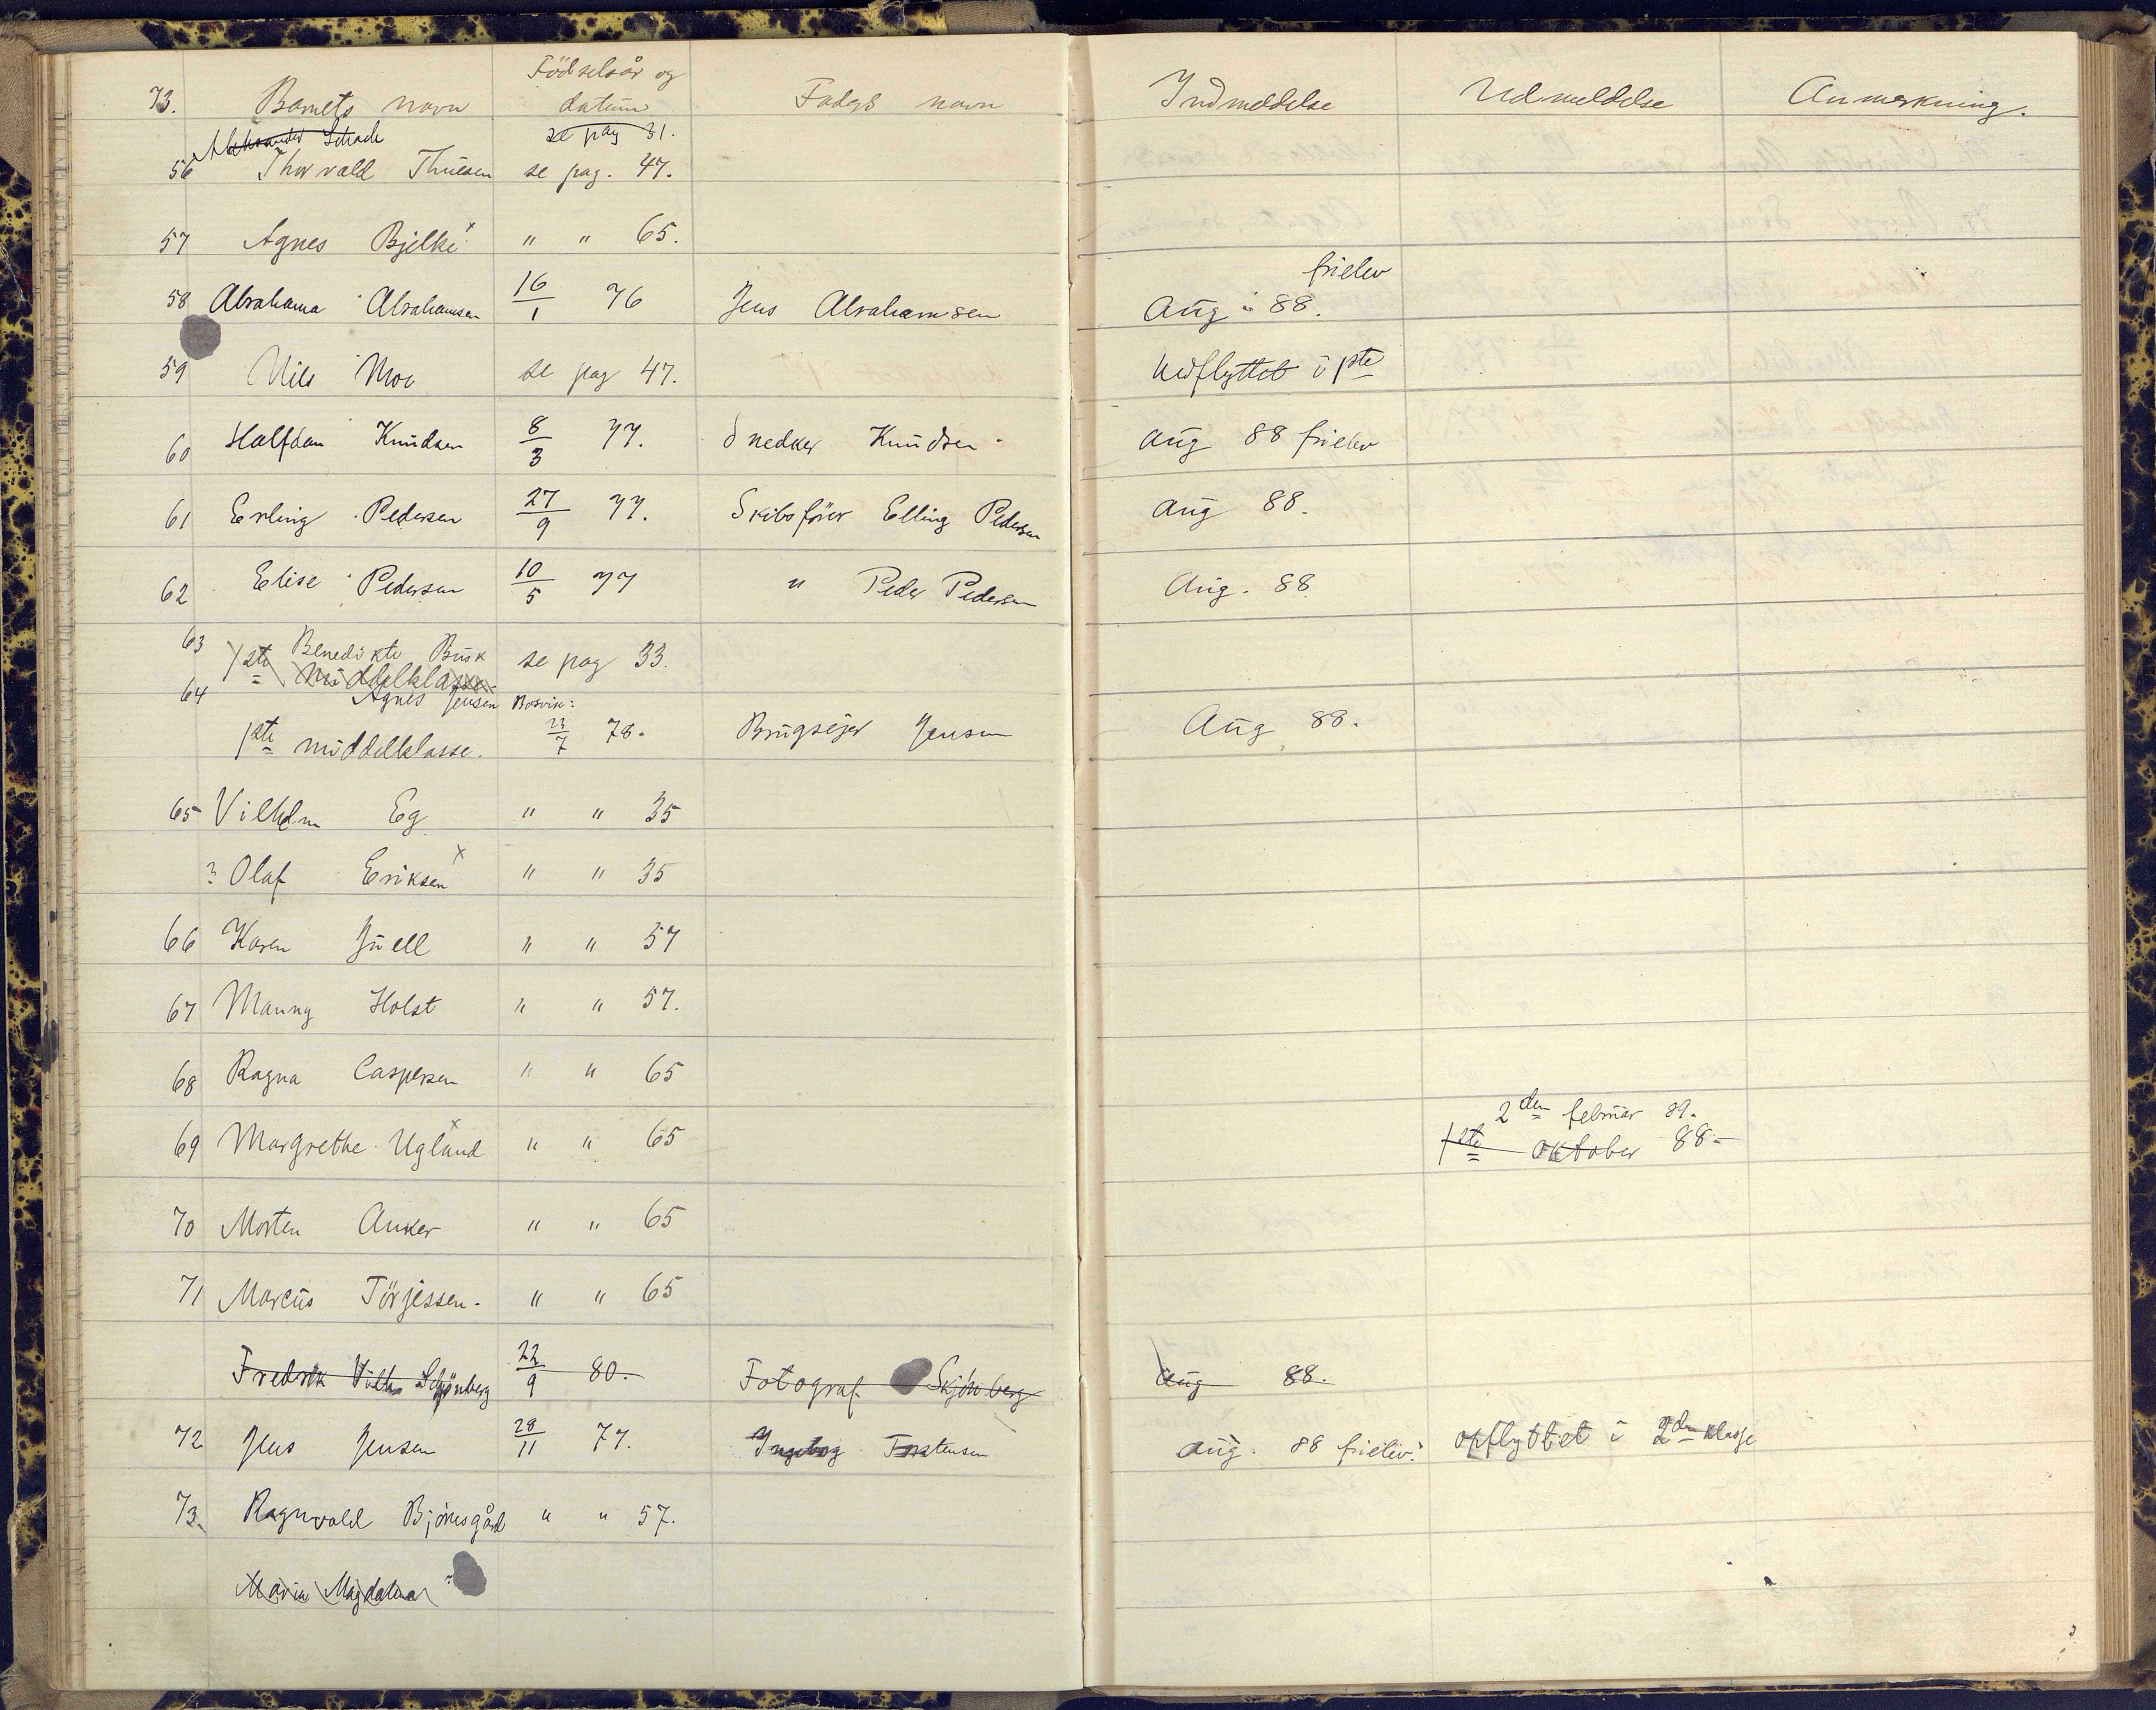 73. Barnets navn Födselsår og datum Faders navn Indmeldelse Udmeldelse Anmerkning.
Aleksander Schach se pag 31.
56 Thorvald Thuesen se pag. 47.
57 Agnes Bjelke x " " 65.
58 Abrahama Abrahamsen 16/1 76 Jens Abrahamsen Aug. 88. frielev
59 Nils Moe se pag 47. Nedflyttet i 1ste
60 Halfdan Knudsen 8/3 77. Snedker Knudsen aug 88 frielev
61 Erling Pedersen 27/9 77. Skibsförer Elling Pedersen aug 88.
62 Elise Pedersen 10/5 77 " Peder Pedersen Aug. 88
63 Benedikte Busk se pag 33.
1ste Middelklasse
64 Agnes Jensen Bosvik: 23/7 78. Brugsejer Jensen Aug 88.
1ste middelklasse.
65 Vilhelm Eg " " 35
? Olaf Eriksen x " " 35
66 Karen Juell " " 57
67 Manny Holst " " 57.
68 Ragna Caspersen " " 65
2den februar 89.
69 Margrethe Ugland x " " 65 1ste oktober 88-
70 Morten Anker " " 65
71 Marcus Törjessen. " " 65
Fredrik Vilh. Schjönberg 22/9 80. Fotograf Skjönberg aug 88.
72 Jens Jensen 28/11 77. Ingeborg Torstensen aug. 88 frielev. opflyttet i 2den klasse
73. Ragnvald Björnsgård " " 57.
Marie Magdalena